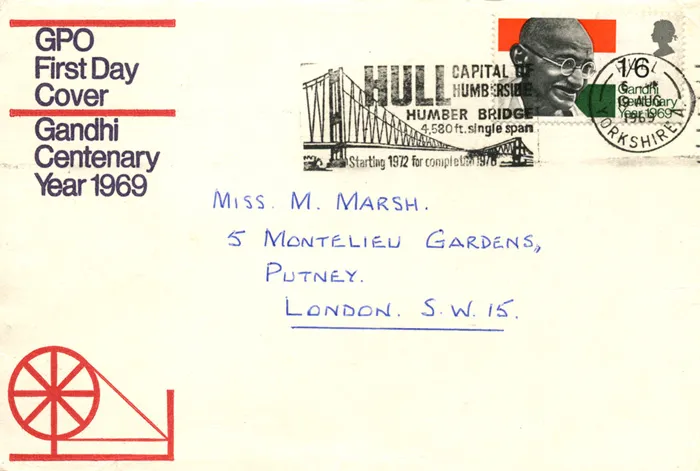 GPO
First Day
Cover
Gandhi
Centenary
Year 1969
HULL
CAPITAL OF
HUMBERSIDE
HUMBER BRIDGE
4,580 ft. single span
Starting 1972 for completion 1976
1/6
Gandhi
Centenary
Year 1969
HULL
19 AUG
1969
YORKSHIRE
MISS. M. MARSH.
5 MONTELIEU GARDENS,
PUTNEY.
LONDON. S.W.15.